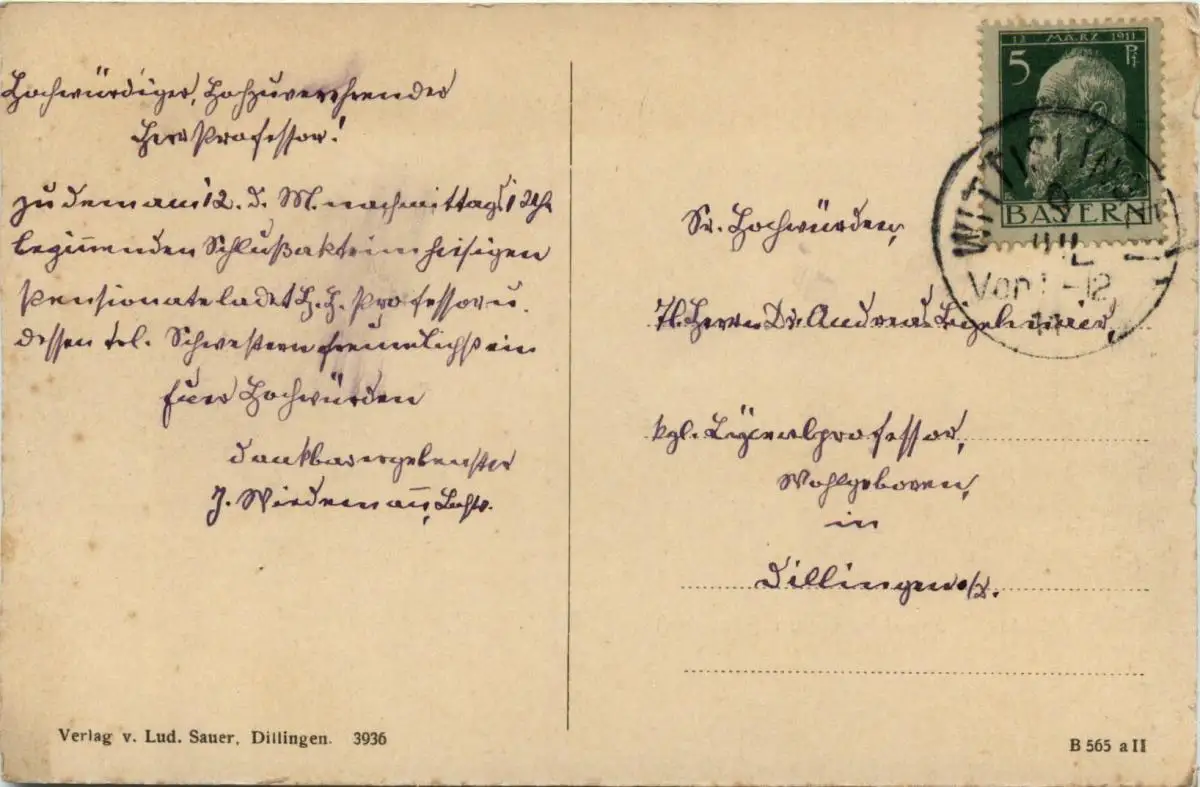 Hochwürdiger, Hochzuverehrender
Herr Professor!
Zu dem am 12. d. M. nachmittags 1 Uhr
beginnenden Schlußakte im hiesigen
Pensionate ladet H. H. Professor u.
dessen Frl. Schwestern freundlichst ein
Euer Hochwürden
dankbar ergebenster
J. Wiedemann,
Verlag v. Lud. Sauer, Dillingen. 3936
12. MÄRZ 1911
5 Pf
BAYERN
WITTISLINGEN
9
JUL
Vor 11-12
11
Sr. Hochwürden,
Tl. Herrn Dr. Andreas Bigelmair,
kgl. Lyzealprofessor,
Wohlgeboren,
in
Dillingen a/D.
B 565 a II